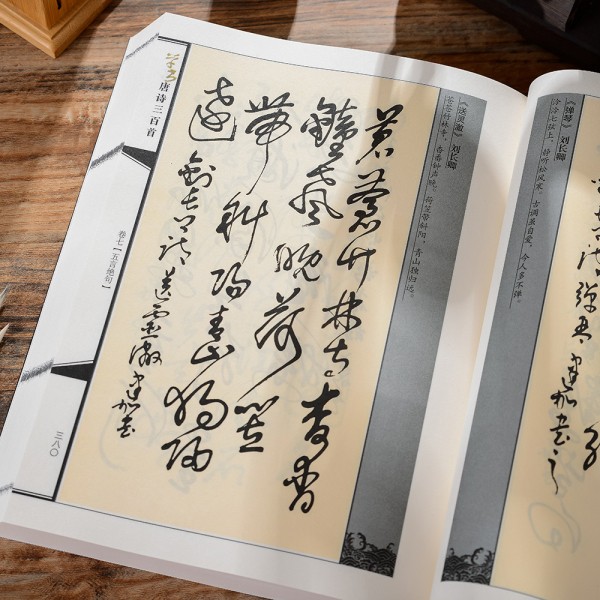 《弹琴》 刘长卿
泠泠七弦上，静听松风寒。古调虽自爱，今人多不弹。
《送灵澈》 刘长卿
苍苍竹林寺，杳杳钟声晚。荷笠带斜阳，青山独归远。
蒼蒼竹林寺杳杳
鐘聲晚荷笠
帶斜陽青山獨歸
遠
劉長卿詩送靈澈
唐诗三百首
卷七【五言绝句】
三八〇